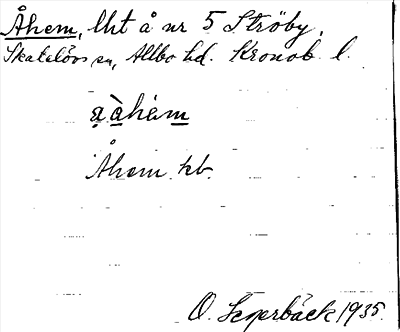 Åhem, lht å nr 5 Ströby,
Skatelövs sn, Allbo hd. Kronob. l.
a àhèm
Åhem kb.
O. Segerbäck 1935.